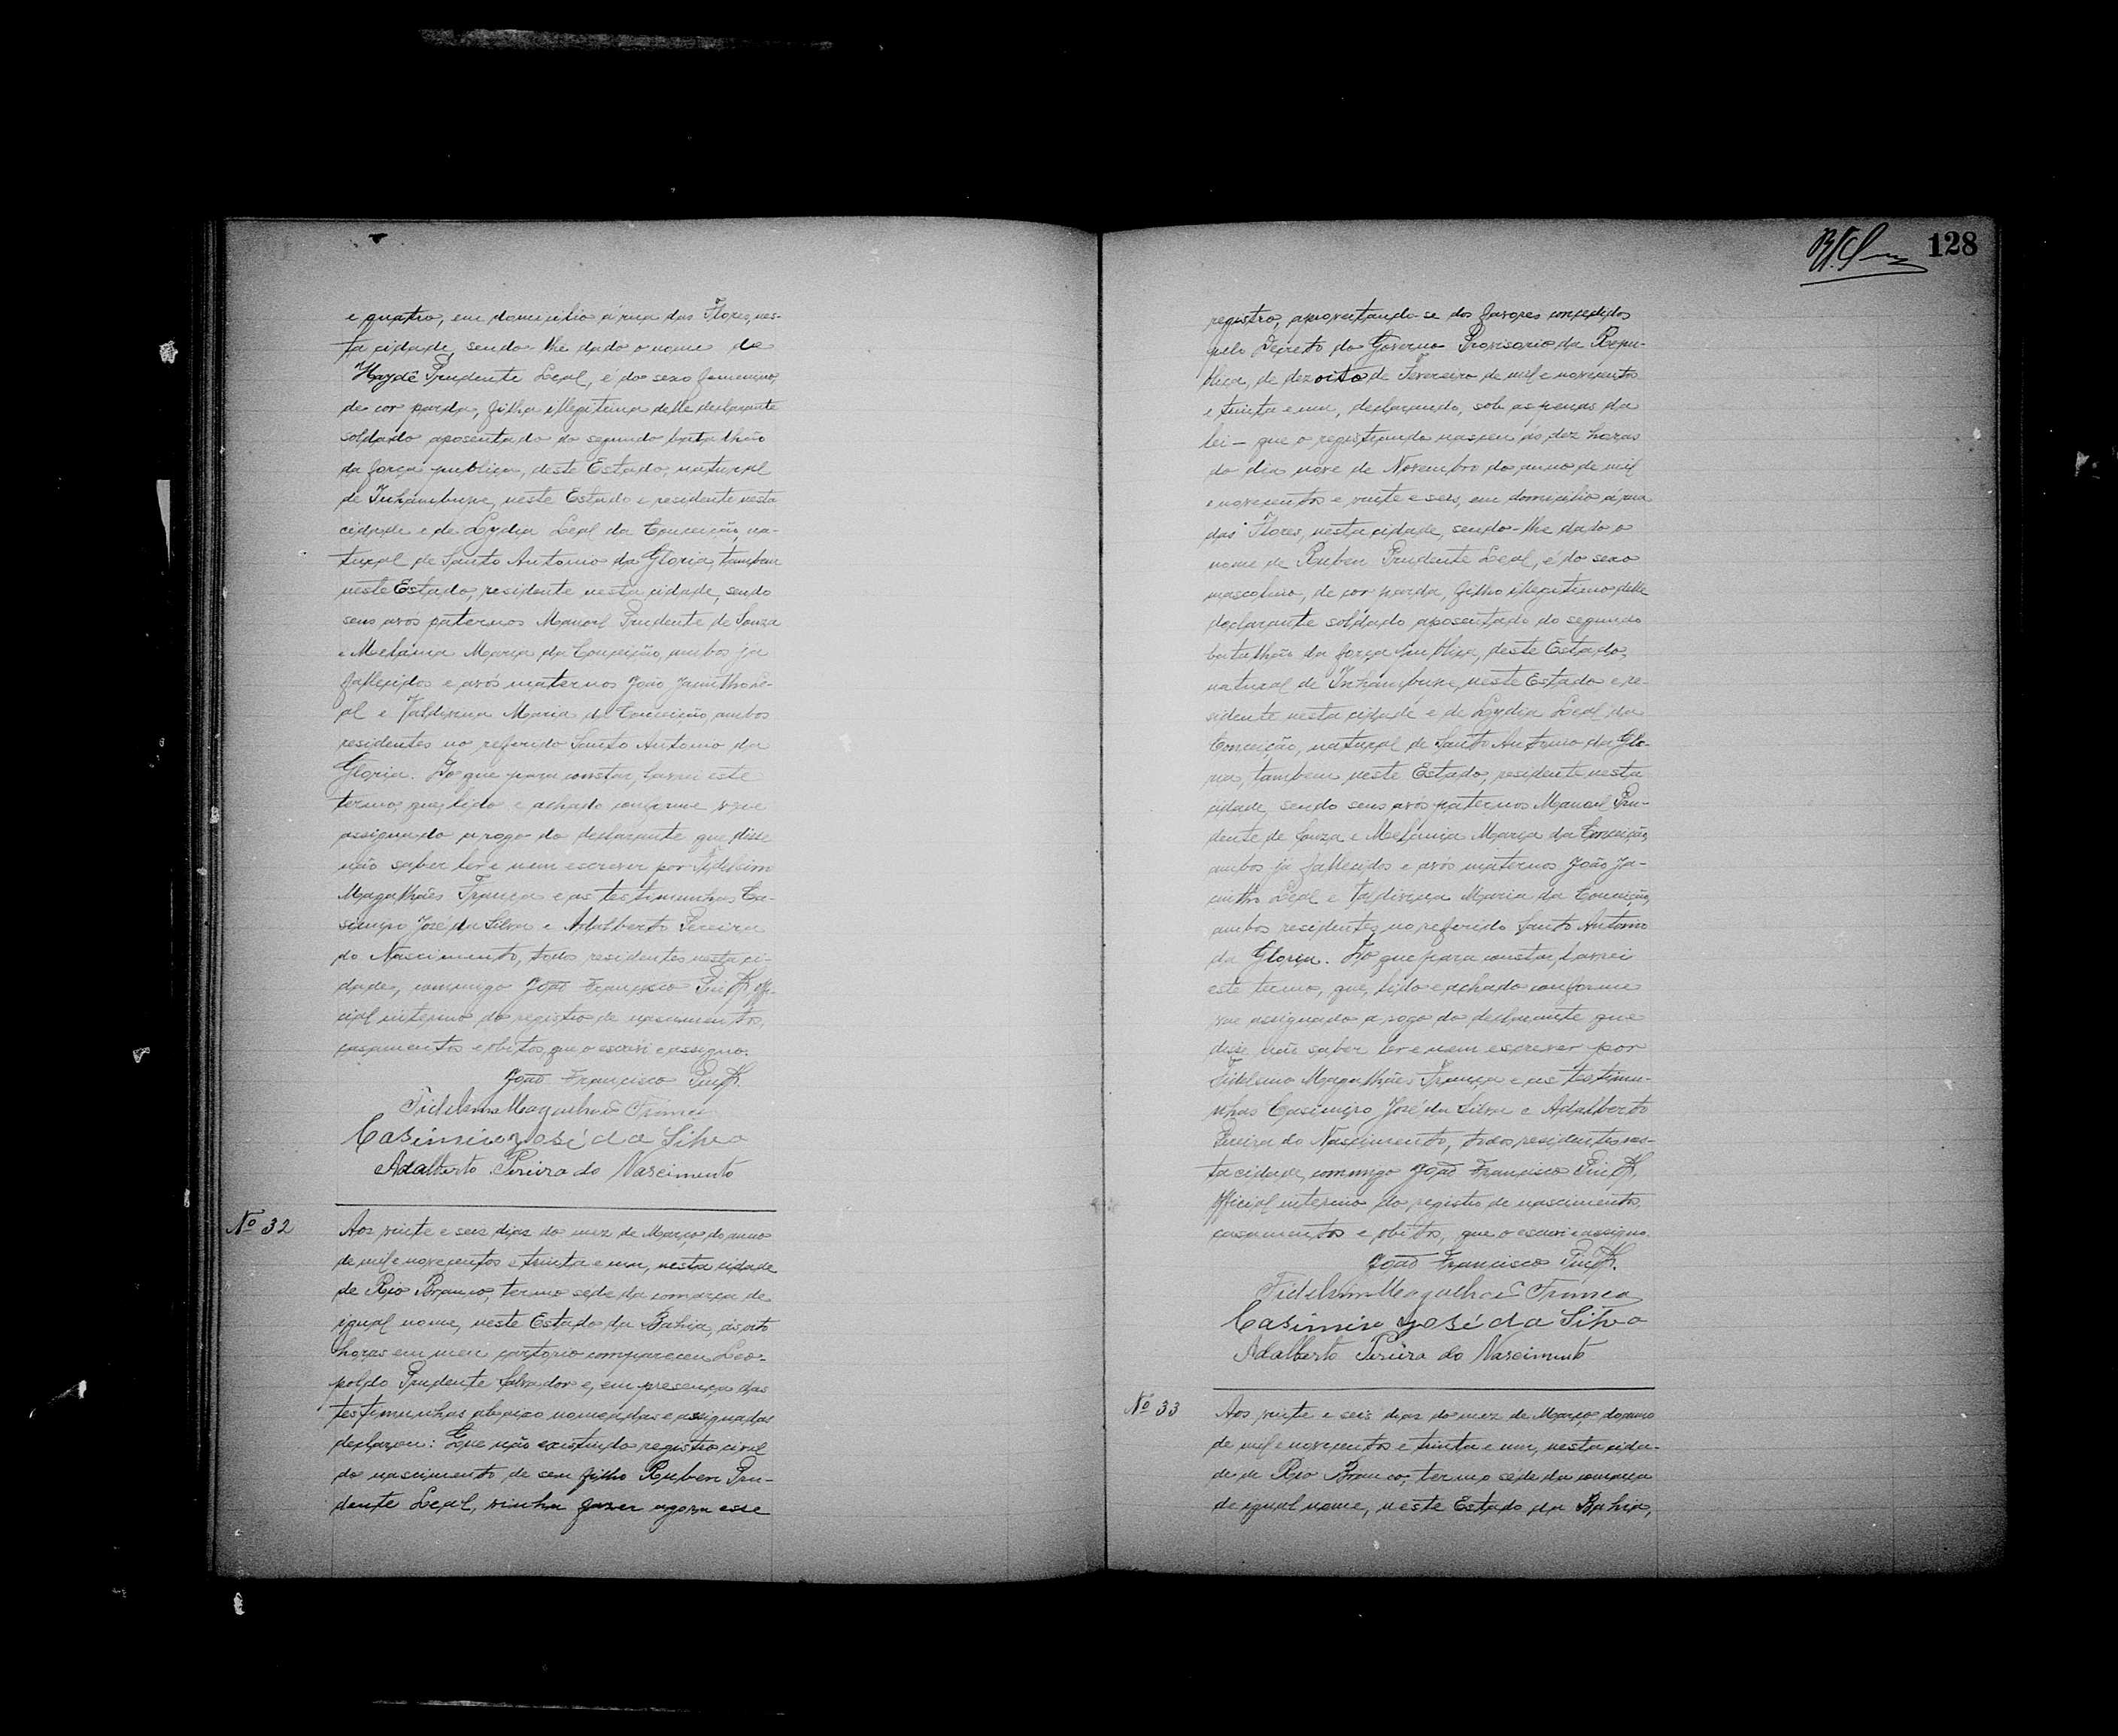 e quatro, em domicilio á rua das Flores, nes-
ta cidade, sendo-lhe dado o nome de
Haydê Prudente Leal, é do sexo femenino,
de cor parda, filha illegitima delle declarante
soldado aposentado do segundo batalhão
da força publica, deste Estado, natural
de Inhambupe, neste Estado e residente nesta
cidade e de Lydia Leal da Conceição, na-
tural de Santo Antonio da Gloria, tambem
neste Estado, residente nesta cidade, sendo
seus avos paternos Manoel Prudente de Souza
e Melania Maria da Conceição, ambos ja
fallecidos e avós maternos João Jacintho Le-
al e Valdivina Maria da Conceição, ambos
residentes no referido Santo Antonio da
Gloria. Do que para constar, lavrei este
termo, que, lido e achado conforme vae
assignado a rogo do declarante que disse
não saber ler e nem escrever por Fidelcino
Magalhães França e as testimunhas Ca-
simiro José da Silva e Adalberto Pereira
do Nascimento, todos residentes nesta ci-
dade, commigo João Francisco offi-
cial interino do registro de nascimentos,
casamentos e obitos, que o escrevi e assigno.
João Francisco
Magalhães França
Casimiro José da Silva
Adalberto Pereira do Nascimento
Nº 32
Aos vinte e seis dias do mez de Março do anno
de mil e novecentos e trinta e um, nesta cidade
de Rio Branco, termo séde da comarca de
igual nome, neste Estado da Bahia, ás oito
horas em meu cartorio compareceu Leo-
poldo Prudente Salvador e, em presença das
testimunhas abaixo nomeadas e assignadas
declarou: Que não existindo registro civil
do nascimento de seu filho Ruben Pru-
dente Leal, vinha fazer agora esse
128
registro, aproveitando-se dos favores concedidos
pelo Decreto do Governo Provisorio da Repu-
blica, de dezoito de Fevereiro de mil e novecentos
e trinta e um, declarando, sob as penas da
lei - que o registrando nasceu ás dez horas
do dia nove de Novembro do anno de mil
e novecentos e vinte e seis, em domicilio á rua
das Flores, nesta cidade, sendo-lhe dado o
nome de Ruben Prudente Leal, é do sexo
mascolino, de cor parda, filho illegitimo delle
declarante soldado aposentado do segundo
batalhão da força publica, deste Estado,
natural de Inhambupe, neste Estado e re-
sidente nesta cidade e de Lydia Leal da
Conceição, natural de Santo Antonio da Glo-
ria, tambem neste Estado, residente nesta
cidade, sendo seus avós paternos Manoel Pru-
dente de Souza e Melania Maria da Conceição,
ambos ja fallecidos e avós maternos João Ja-
cintho Leal e Valdivina Maria da Conceição,
ambos residentes no referido Santo Antonio
da Gloria. Do que para constar, lavrei
este termo, que, lido e achado conforme
vae assignado a rogo do declarante que
disse não saber ler e nem escrever por
Magalhães França e as testimu-
nhas Casimiro José da Silva e Adalberto
Pereira do Nascimento, todos residentes nes-
ta cidade, commigo João Francisco
official interino do registro de nascimentos,
casamentos e obitos, que o escrevi e assigno.
João Francisco
Magalhães França
Casimiro José da Silva
Adalberto Pereira do Nascimento
Nº 33
Aos vinte e seis dias do mez de Março do anno
de mil e novecentos e trinta e um, nesta cida-
de de Rio Branco, termo séde da comarca
de igual nome, neste Estado da Bahia,